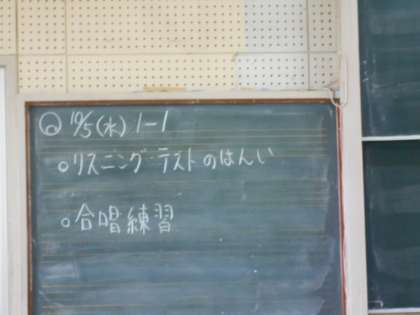 10/5(水) 1-1
○リスニング・テストのはんい
○合唱練習